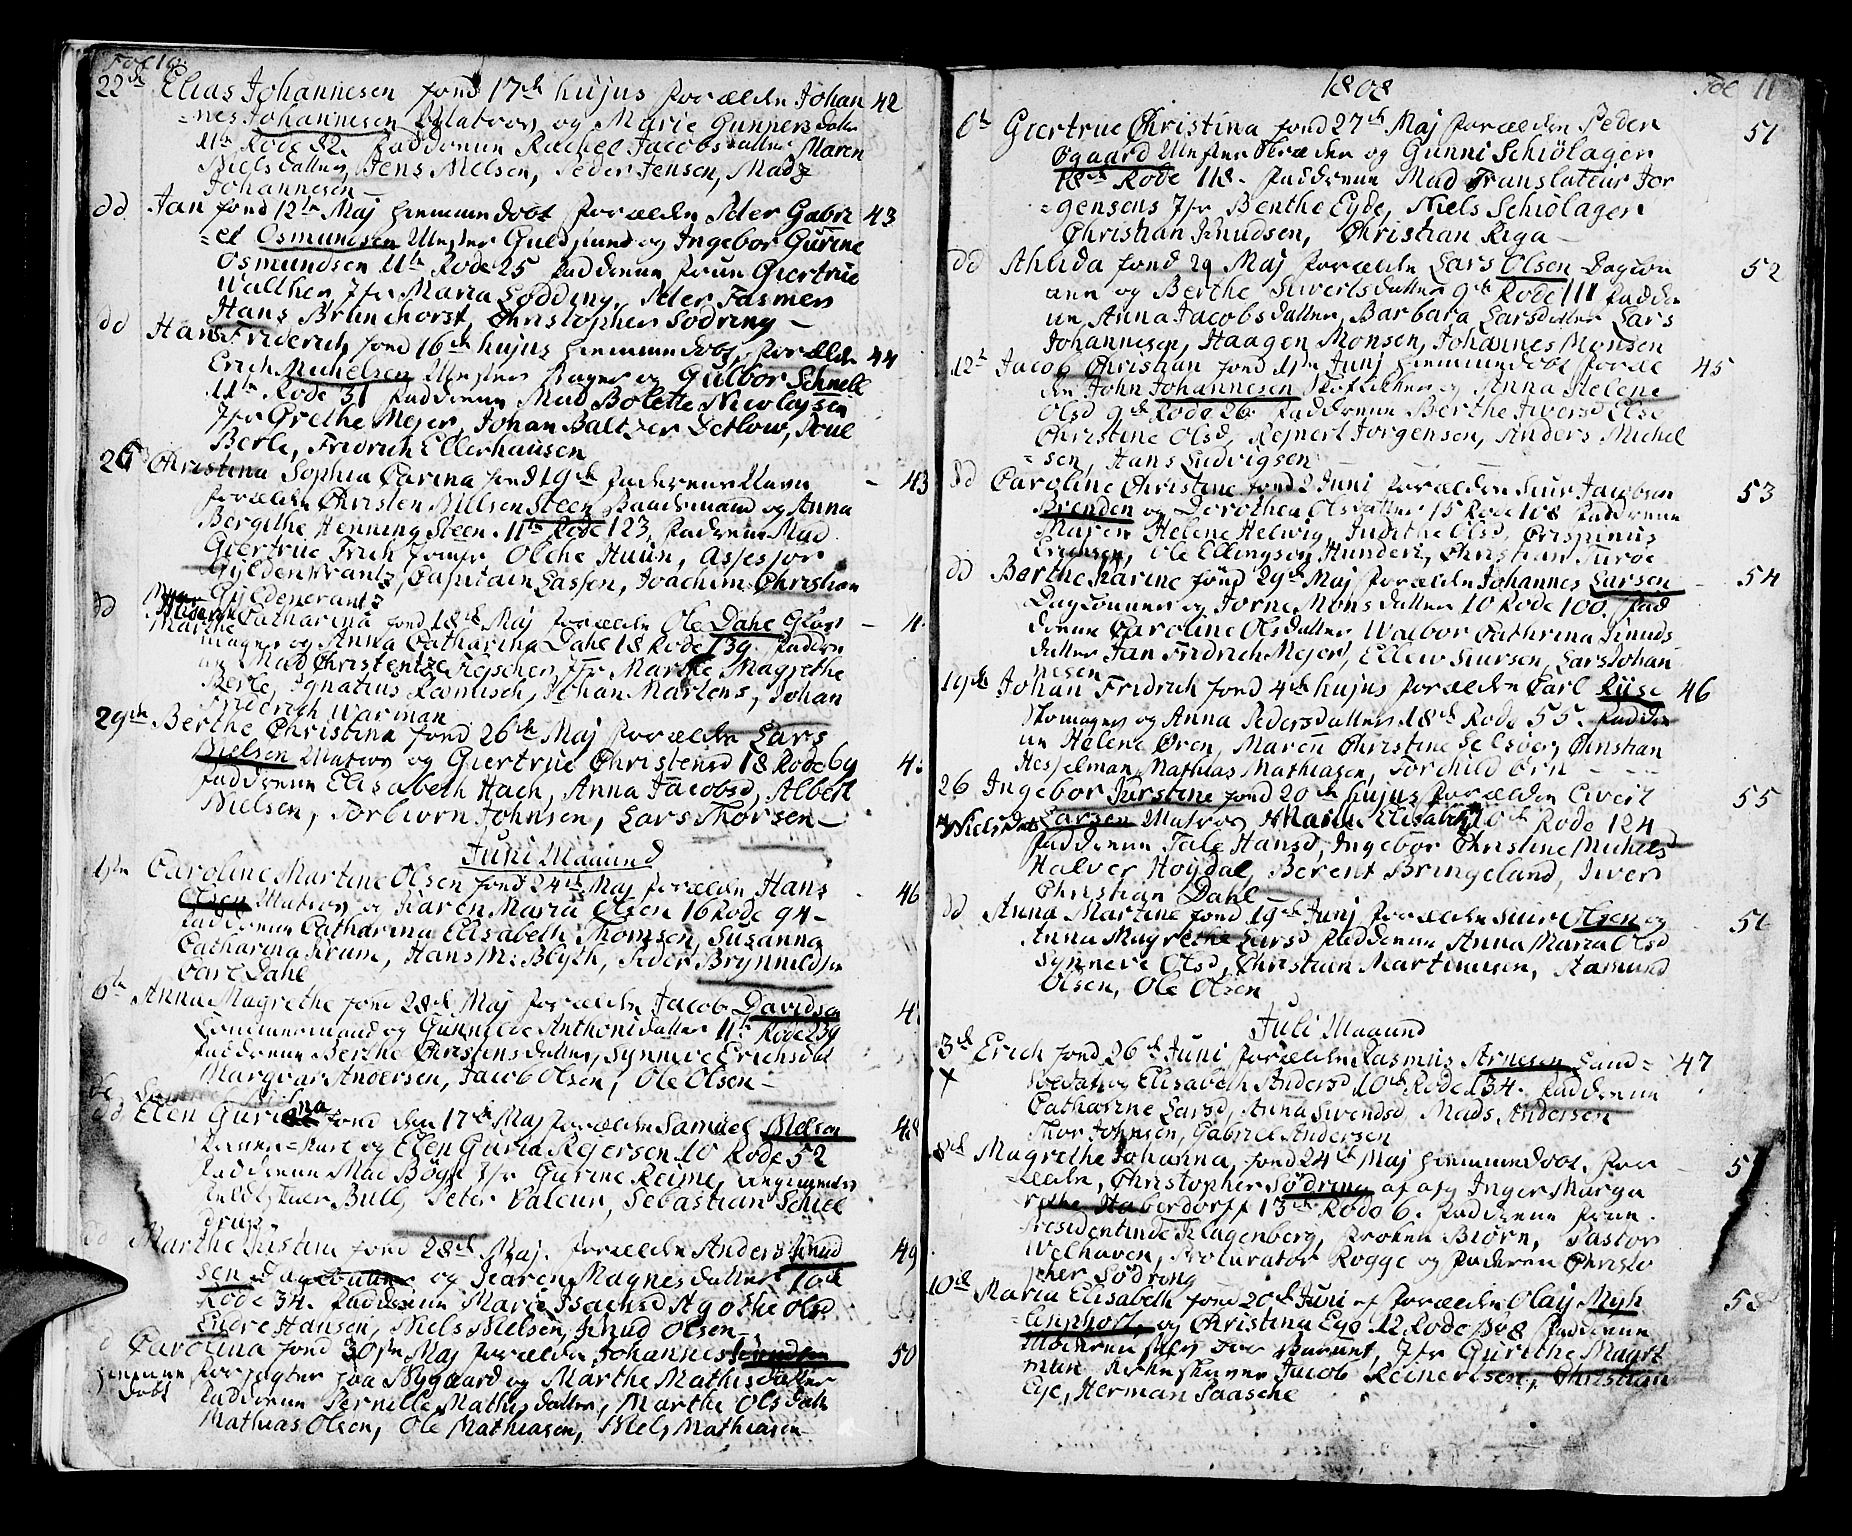 Fol 10.
22de Elias Johannesen fønd 17de hujus forældre Johan 42
=nes Johannesen Matros og Marie Gunners datter
11te Rode 82. Fadderne Rachel Jacobsdatter Maren
Nielsdatter, Jens Nielsen, Peder Jensen, Madz
Johannesen —
dd Jan fønd 12te Maj hiemmedøbt forældre Peter Gabri 43
=el Osmundsen Mester Guldsmed og Ingebor Gurine
Osmundsen 11te Rode 25 Fadderne frue Giertrue
Walther Jfr Maria Lødding, Peter Fasmer
Hans Brunchorst, Christopher Sødring —
dd Hans Friderich fønd 16de hujus hiemmedøbt, forældre 44
Erich Michelsen Mester Bager og Gulbor Schnell
11te Rode 31 Fadderne Mad Bolette Nicolaysen
Jfr Grethe Mejer, Johan Baltzer Detlow, Poul
Berle, Fridrich Ellerhausen
26 Christina Sophia Carina fønd 19de — 43
forældre Christen Nielsen Steen Baadsmand og Anna
Bergithe Henning Steen. 11te Rode 123, Fadderne Mad
Giertrue Frich Jomfr Olche Huun, Assessor
Gyldenkrantz, Capitain Lassen, Joachim Christian
Gyldencrantz
dd Marthe Catharina fønd 18de Maj forældre Ole Dahl Glar —
mager og Anna Catharina Dahl 18 Rode 139. Fadder
ne Mad Christentze Fischer, Jfr Marthe Magrethe
Berle, Ignatius Rømisch, Johan Martens, Johan
Friedrich Warman
29de Berthe Christina fønd 26de Maj forældre Lars
Nielsen Matros og Giertrue Christensd 18 Rode 69 4
Fadderne Elisabeth Hach, Anna Jacobsd, Albert
Nielsen, Torbiørn Johnsen, Lars Thorsen —
Juni Maaned
1ste Caroline Martine Olsen fønd 24de Maj forældre Hans 46
Olsen Matros og Karen Maria Olsen 16 Rode 94 —
Fadderne Catharina Elisabeth Thomsen, Susanna
Catharina Krum, Hans M: Blyth, Peder Brynnildsen
Carl Dahl
6te Anna Magrethe fønd 28de Maj forældre Jacob Davidsen 4
Tømmermand og Gunnilde Anthonidatter 11te Rode 239
Fadderne Berthe Christensdatter, Synneve Erichsdat
Margvar Andersen, Jacob Olsen, Ole Olsen —
dd Elen Gurina fønd den 17de Maj forældre Samuel Nielsen 48
og Elen Guria Rejersen 10 Rode 52
Fadderne Mad Bøgh Jfr Gurine Reime, Regiments
Bull, Peter Valeur, Sebastian Schiel
drup
dd Marthe Justine fønd 28de Maj. forældre Anders Knud 49
sen og Karen Magnesdatter 10de
Rode 34. Fadderne Marie Isachsd Agothe Olsd
Endre Hansen, Niels Nielsen, Knud Olsen
d Carolina fønd 30te Maj forældre Johannes 50
hiemme forpagter paa Nygaard og Marthe Mathisdatter
døbt Fadderne Pernille Mathisdatter, Marthe Olsdatt
Mathias Olsen, Ole Mathiasen, Niels Mathiasen
1808 Fol 11
6te Giertrue Christina fønd 27de Maj forældre Peder 51
Øgaard Mester Skræder og Gunni Schiölager
18de Rode 118. Fadderne Mad Translateur Jør
=gensens Jfr Benthe Eyde, Niels Schiölager
Christian Knudsen, Christian Riga —
dd Ahlida fønd 29 Maj forældre Lars Olsen Dagløn 52
ner og Berthe Siverlsdatter 9de Rode 111 Fadder
ne, Anna Jacobsdatter, Barbara Larsdatter Lars
Johannesen, Haagen Monsen, Johannes Monsen
12te Jacob Christian fønd 1ste Junj hiemmedøbt foræl 45
dre John Johannesen Skoflikker og Anna Helene
Olsd 9de Rode 26. Fadderne Berthe Iversd Else
Christine Olsd, Rejnert Jorgensen, Anders Michel
=sen, Hans Ludvigsen
dd Caroline Christine fønd 2 Juni forældre Siur Jacobsen 53
Brenden og Dorothea Olsdatter 15 Rode 108 Fadderne
Maren Helene Helwig, Judithe Olsd, Crispinus
Erichsen, Ole Ellingsen Hunderi, Christian Turøe
dd Berthe Karine fønd 29de Maj forældre Johannes Larsen — 54
Daglønner og Jorne Monsdatter 10 Rode 100. Fad
derne Caroline Olsdatter, Walbor Cathrina Knuds
datter Jan Fridrich Mejer, Ellew Siursen, Lars Johan
nesen
19de Johan Fridrich fønd 4de hujus forældre Carl Riise 46
Skomager og Anna Pedersdatter 18de Rode 55. Fadder
ne Helene Øren, Maren Christine Selsøer, Christian
Hesselman, Mathias Mathiasen, Torchild Ørn —
26 Ingebor Kirstine fønd 20de hujus forældre Eivert 55
Larsen Matros Maria Elisabeth Nielsdat 10de Rode 124
Fadderne Tale Hansd, Ingebor Christine Michelsd
Halver Høydal, Berent Bringeland, Iver
Christian Dahl —
dd Anna Martine fønd 19de Junj forældre Siur Olsen og 56
Anna Magrethe Larsd Fadderne, Anna Maria Olsd
Synneve Olsd, Christian Martinusen, Aamund
Olsen, Ole Olsen
Juli Maaned
3de Erich fønd 26de Juni forældre Rasmus Arnesen Land= 47
x Soldat og Elisabeth Andersd 10de Rode 134. Fadderne
Catharine Larsd, Anna Swendsd, Mads Andersen
Thor Johnsen, Gabriel Andersen
8de Magrethe Johanna, fønd 24de Maj hiemmedøbt. for — 5
ældre, Christopher Sødring af og Inger Marga
rethe Haberdorff 13de Rode 6. Fadderne frue
Presidentinde Klagenberg, frøken Biørn, Pastor
Welhaven, Procurator Rogge og Faderen Christo
pher Sødring
10de Maria Elisabeth fønd 20de Juni forældre Olaij Myh 58
=lenphort, og Christina Ege 12 Rode 208 Fadderne
Moderen selv bar Barnet, Jfr Gurethe Magrt
man, Kirkeskriver Jacob Reinertsen, Christian
Ege, Herman Saasche